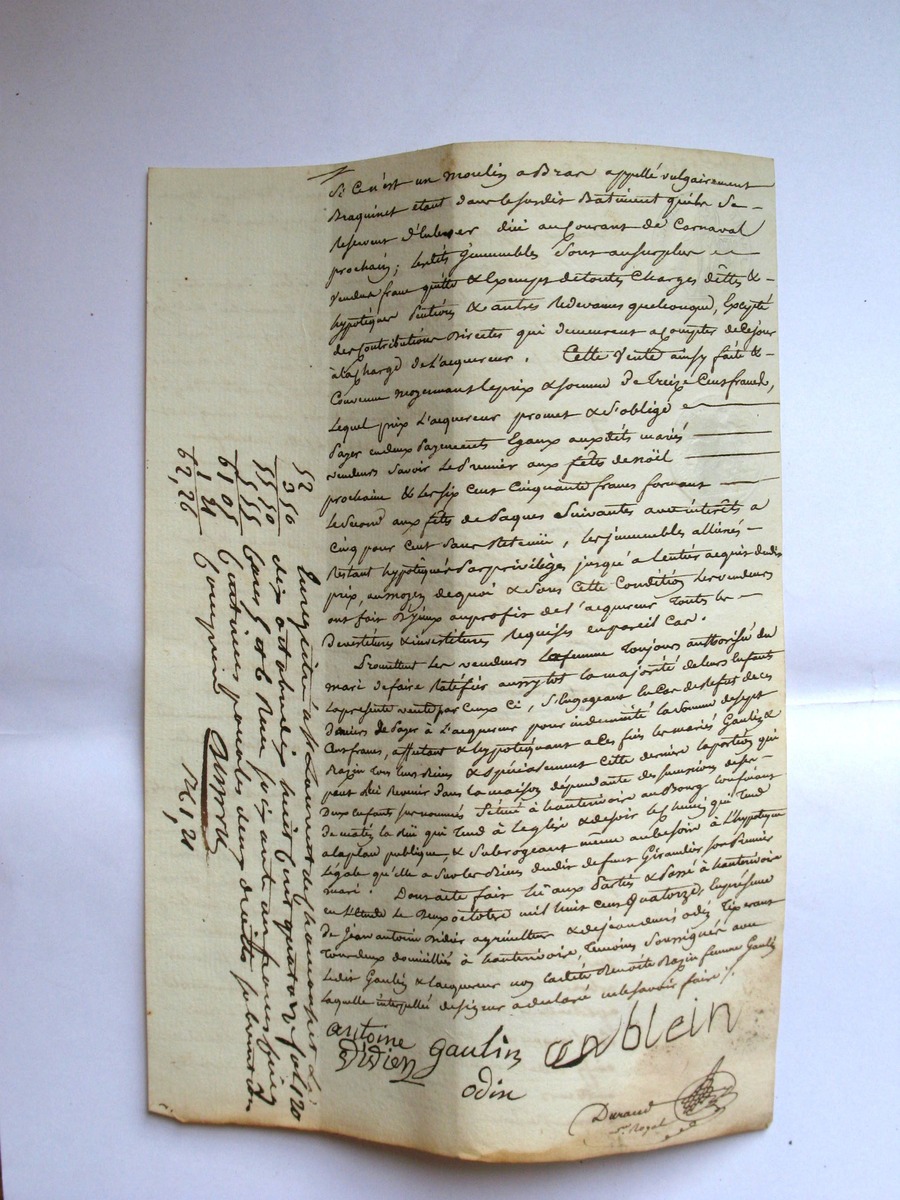 Si Ce n'est un moulin a Bras appellé vulgairement
Braquinet etant dans le susdit Batiment qu'ils Se
Reservent D'Enlever dici au Courant de Carnaval
prochain; lesdits Immeubles Sont au surplus
vendus franc quitte & Exempt de toutes Charges dettes &
hypotéques & autres Redevances quelconque, Excepté
des Contributions Directes qui demeurent a Compter de Ce jour
à la Charge de l'acquereur. Cette Vente ainsy faite &
Convenue moyennant le prix & Somme De Treize Cent francs,
Lequel prix L'acquereur promet & S'oblige
Payer en deux Payements Egaux auxdits mariés
vendeurs Savoir Le Premier aux fêtes de noël
prochaine & les six Cent Cinquante francs formant
le Second aux fêtes de Paques Suivantes avec intérêts a
Cinq pour Cent Sans Retenue, les immeubles alliénés
Restant hypotéqués Par privilèges jusqu'a l'entier acquit dudit
prix, au moyen de quoi & Sous Cette Condition Les vendeurs
ont fait au profit de l'acquereur Toutes les
Devestitures & investitures Requises en pareil Cas.
Promettent les vendeurs La femme Toujours authorisée du
mari de faire Ratifier aussytot la majorité de leurs Enfants
La presente vente par Ceux Ci, S'Engageant En Cas de Refus de Ces
Derniers de Payer à L'acquereur pour indemnité la Somme de Sept
Cent francs, affectant & hypotéquant a Ces fins les mariés Gaulin &
Razin Tous leurs Biens & Spécialement Cette derniere la portion qui
peut lui Revenir Dans la maison dépendante des
Deux enfants Surnommés Située à hauterivoire au Bourg Confinant
de matin la Rüe qui Tend à l'eglise & de soir le Chemin qui Tend
a la place publique, & Subrogeant même au besoin à L'hypotéque
Légale qu'elle a Sur les Biens dudit defunt Giraudier Son Premier
mari. Dont acte fait lu aux Parties & Passé à hauterivoire
en L'étude Le Deux octobre mil huit Cent Quatorze, En présence
de Jean antoine Didier agriculteur & de jean Odin Tixerant
Tous deux domiciliés à hauterivoire, Temoins Soussignés avec
Ledit Gaulin & L'acquereur non ladite Benoite Razin femme Gaulin
Laquelle interpellée de signer a declaré ne le Savoir faire.
antoine
Didier gaulin blein
odin
Durand
Enregistré à St Laurent de Chamousset Le
dix octobre dix huit Cent quatorze folio 120
Reçu soixante un francs Cinq
Centimes pour les deux droits
52
3 50
55 50
5 55
61 05
1 21
62,26